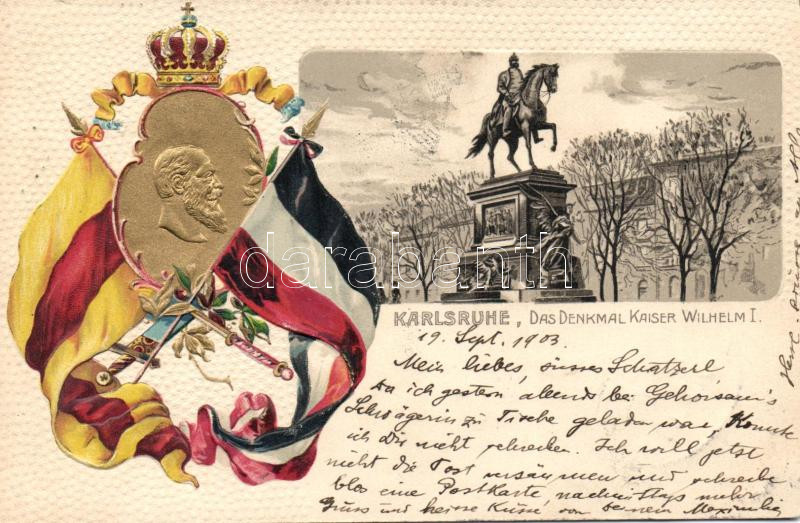 KARLSRUHE, DAS DENKMAL KAISER WILHELM I.
19. Sept. 1903.
Mein liebes, süsses Schatzerl
Da ich gestern abends bei
Schwägerin zu Tische geladen war, konnte
ich Dir nicht schreiben. Ich will jetzt
nicht die Post versäumen und schreibe
blos eine Postkarte, nachmittags mehr
Gruss und heisse Küsse von deinem
darabanth.com